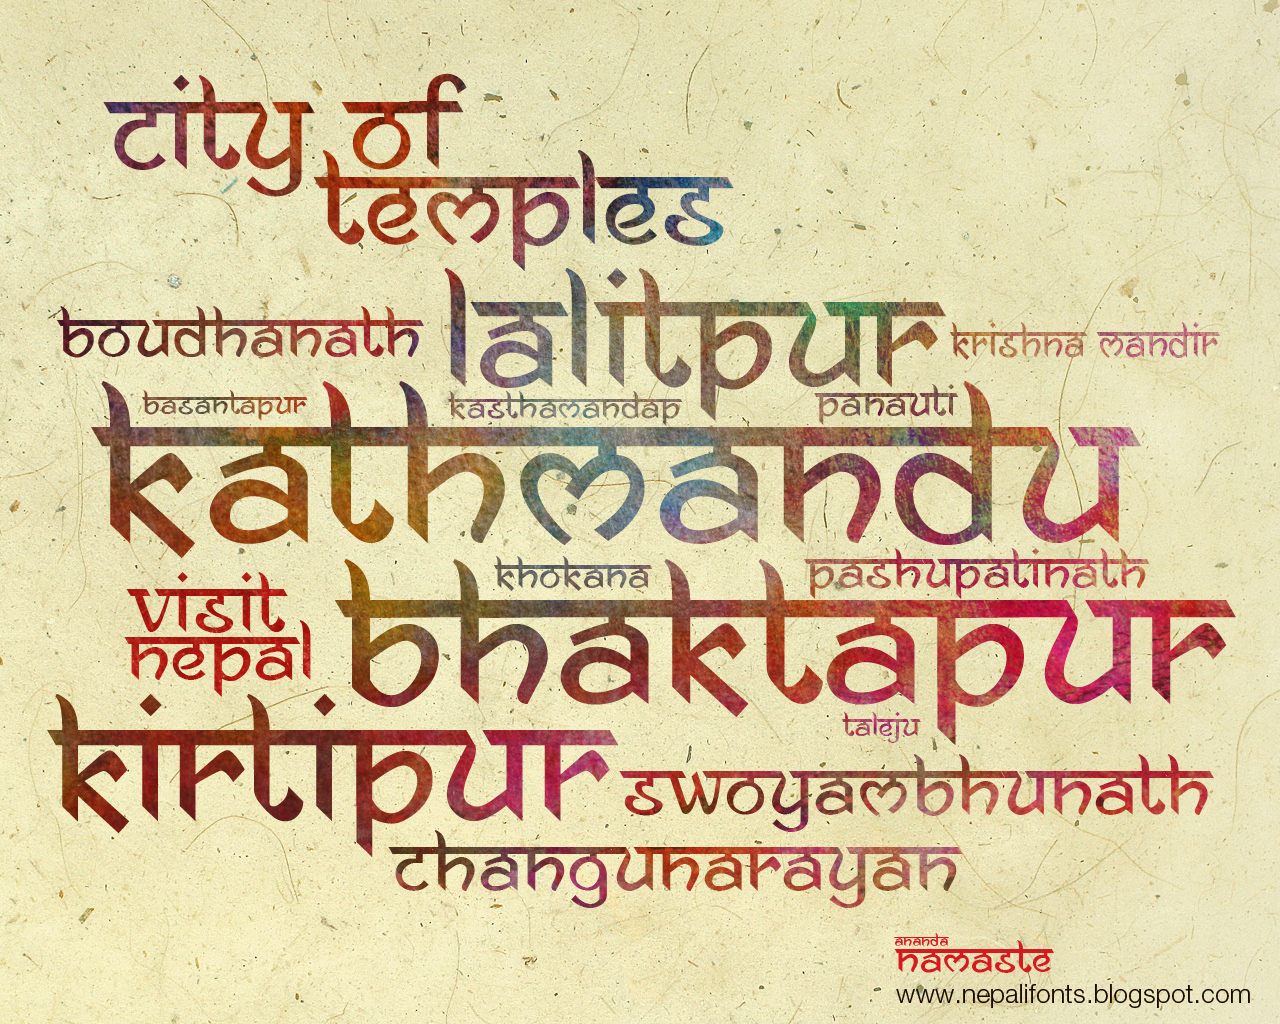 city of
temples
boudhanath
lalitpur
krishna mandir
basantapur
kasthamandap
panauti
kathmandu
khokana
pashupatinath
visit
nepal
bhaktapur
taleju
kirtipur
swoyambhunath
changunarayan
ananda
namaste
www.nepalifonts.blogspot.com